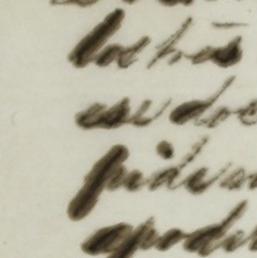 los tres
ese doc
pidien
apoder